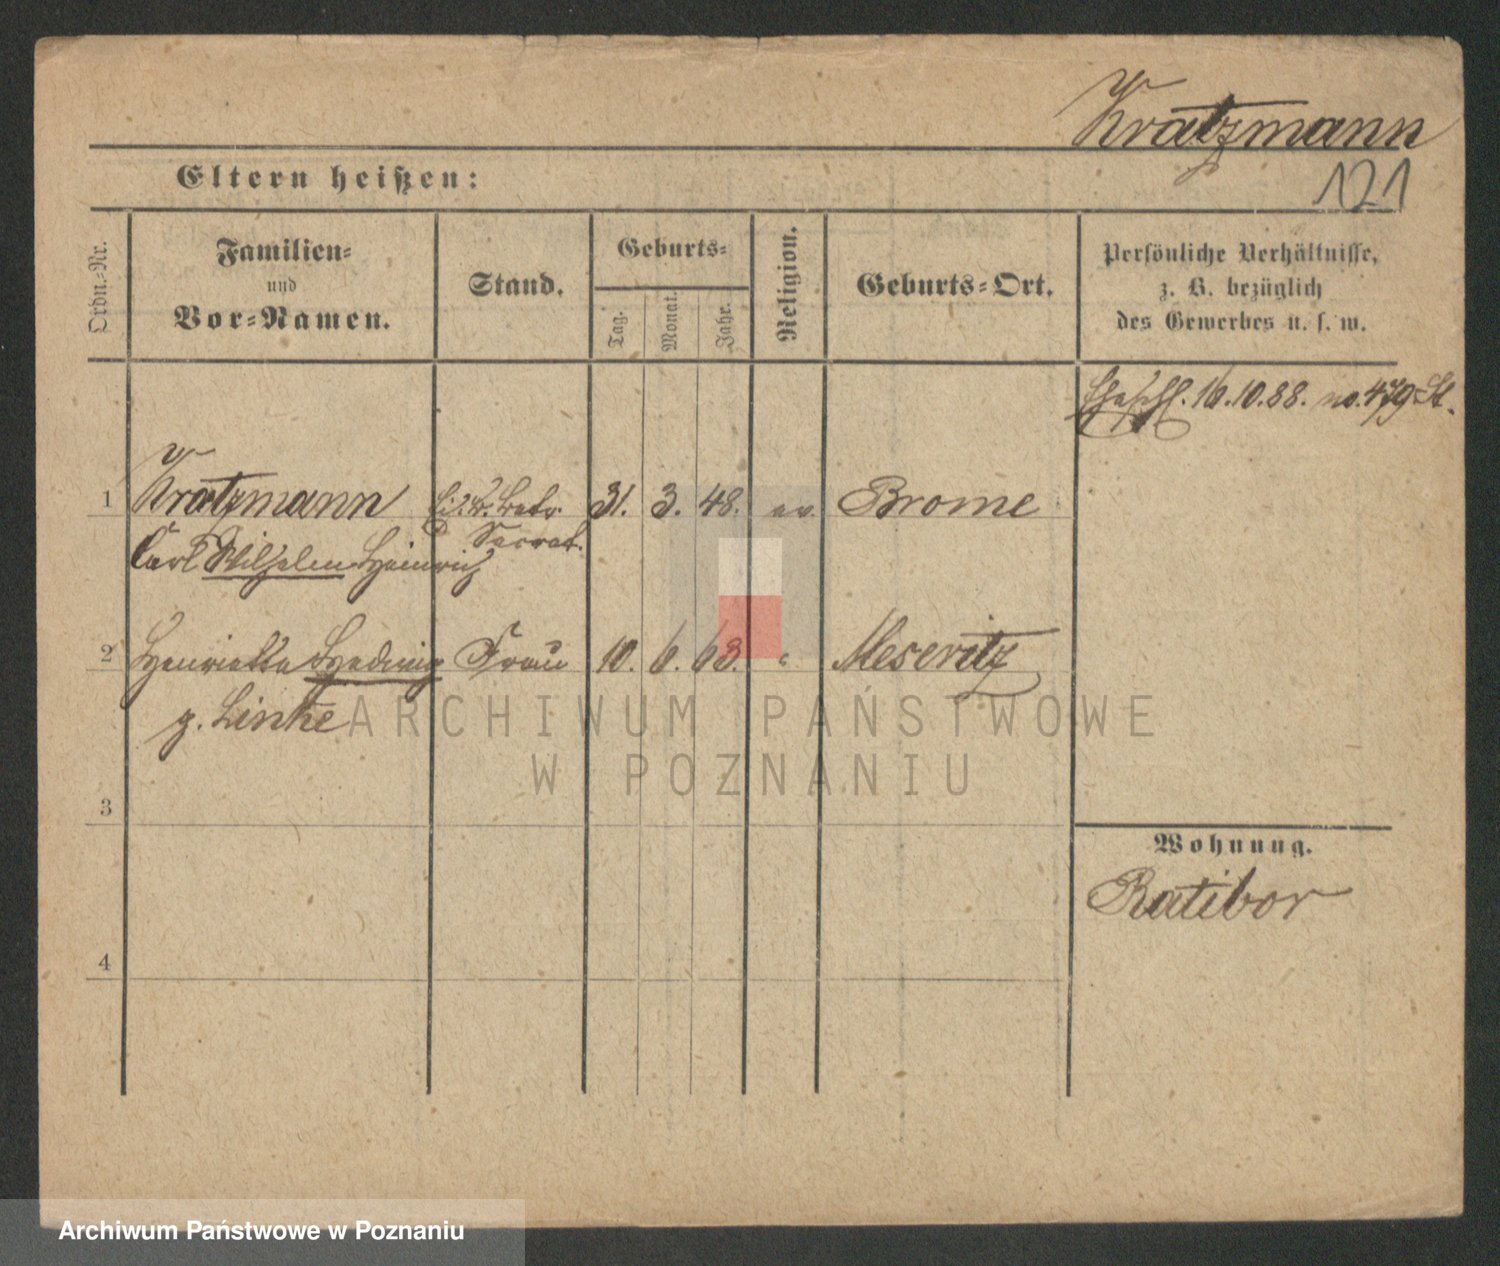 Kratzmann
121
Eltern heißen:
Ordn.-Nr.
Familien-
und
Vor-Namen.
Stand.
Geburts-
Tag.
Monat.
Jahr.
Religion.
Geburts-Ort.
Persönliche Verhältnisse,
z. B. bezüglich
des Gewerbes u. s. w.
Eheschl. 16.10.88. no. 479 St.
1 Kratzmann 31. 3. 48. ev. Brome
Secret.
Carl Wilhelm Heinrich
2 Henriette Hedwig Frau 10. 6. 63. " Meseritz
g. Linke
ARCHIWUM PAŃSTWOWE
W POZNANIU
3
Wohnung.
Ratibor
4
Archiwum Państwowe w Poznaniu